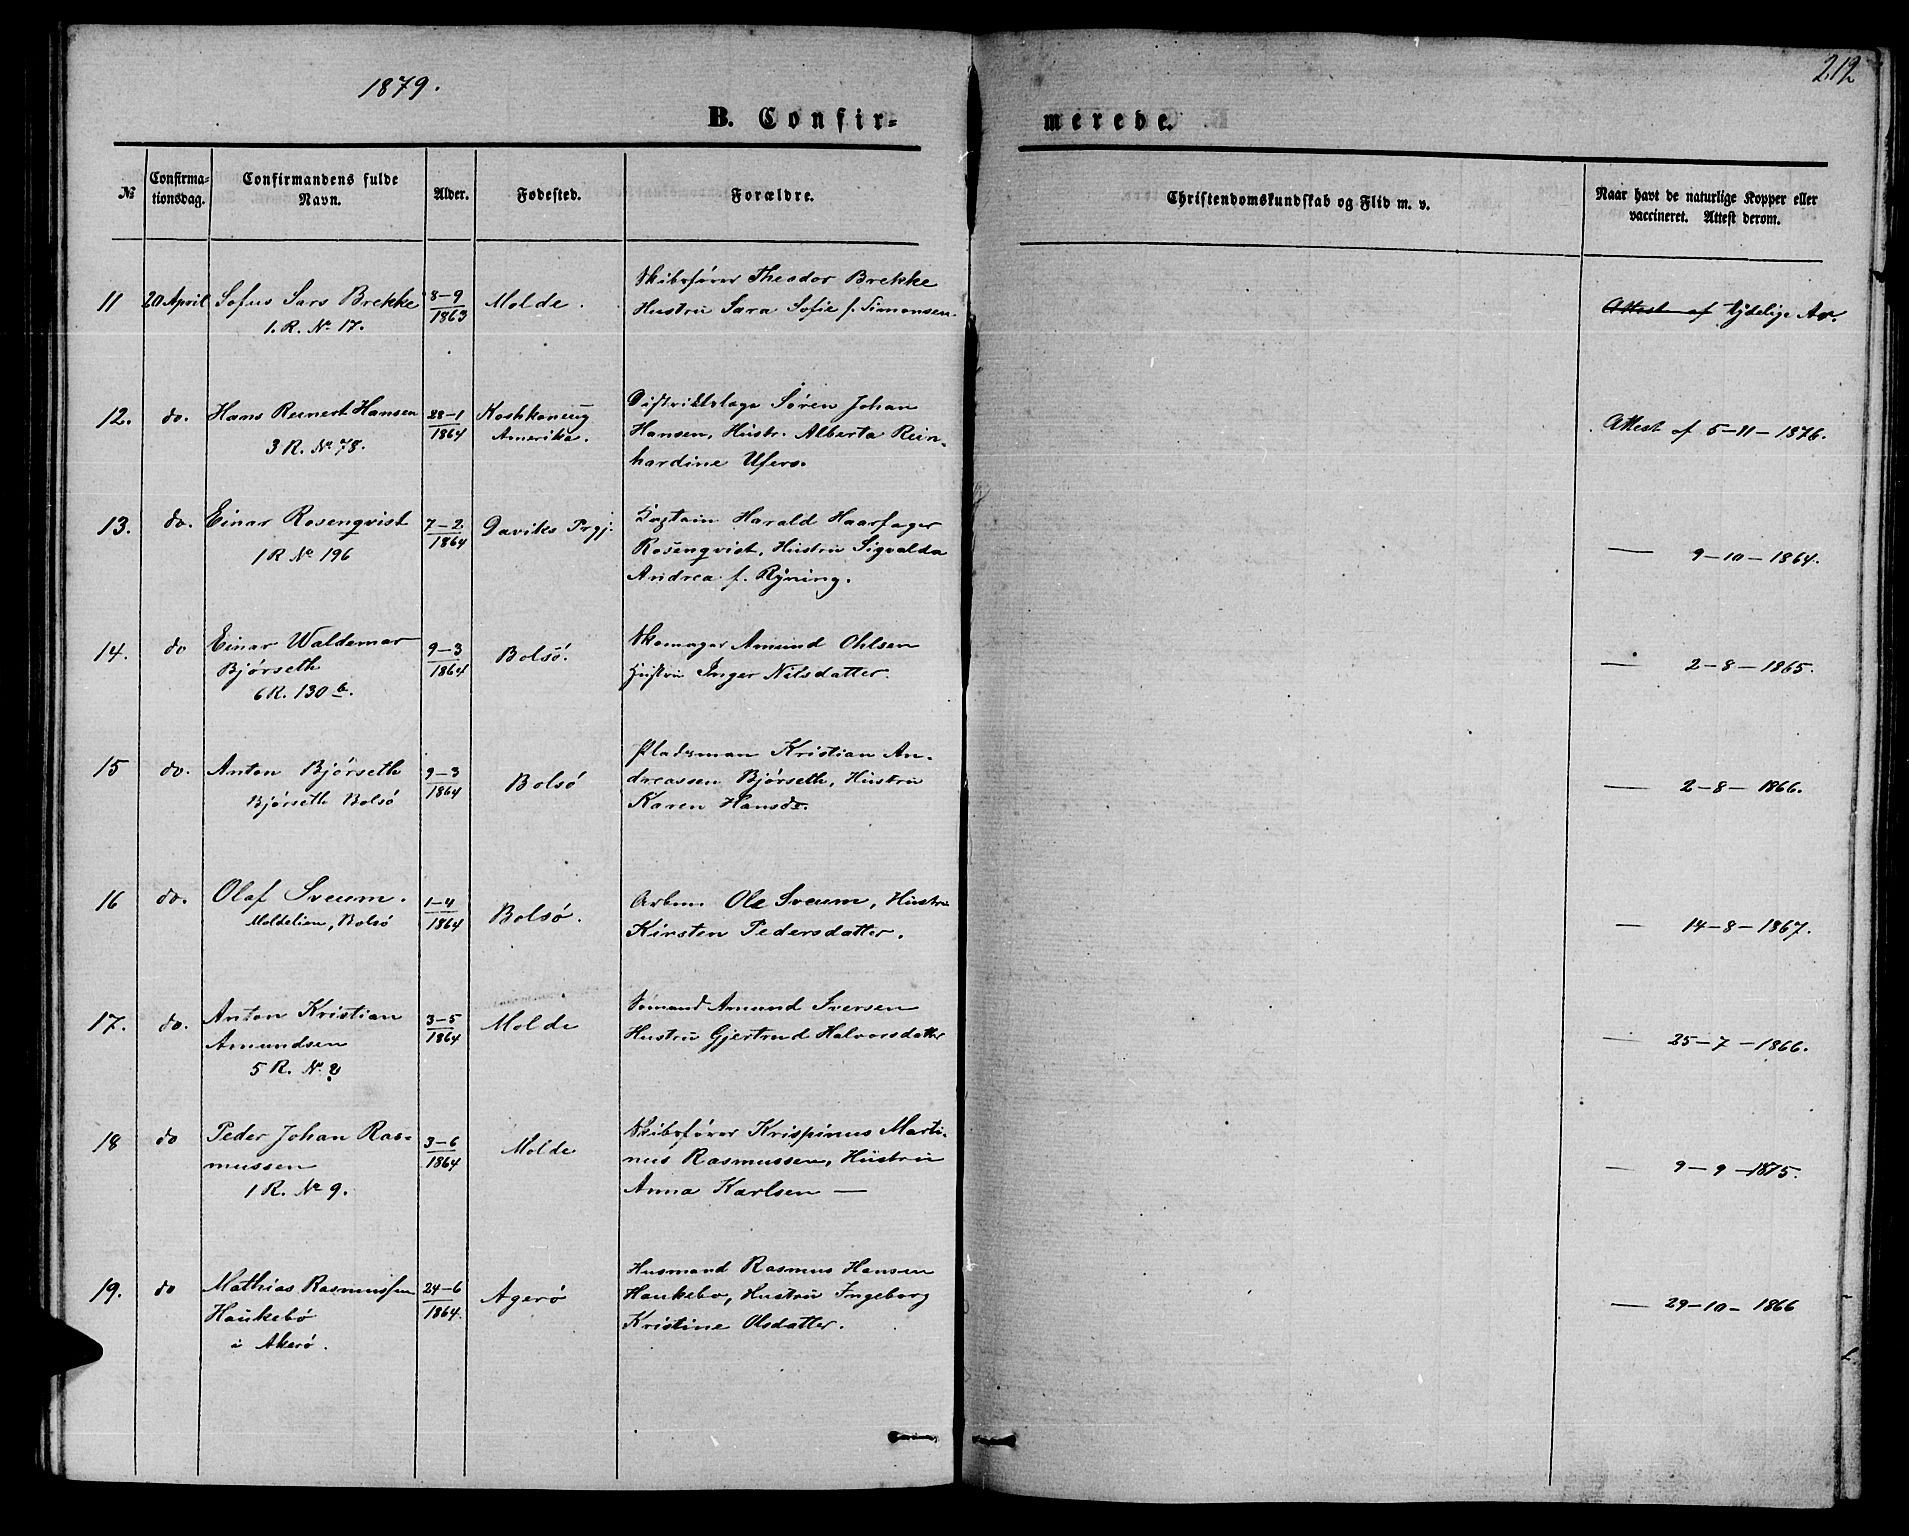 1879.
212
B. Confir-
merede.
№
Confirma-
tionsdag.
Confirmandens fulde
Navn.
Alder.
Fødested.
Forældre.
Christendomskundskab og Flid m. v.
Naar havt de naturlige Kopper eller
vaccineret. Attest derom.
11 20 April Sofus Sars Brekke 8-9 Molde. Skibsfører Theodor Brekke
1. R. No 17. 1863 Hustru Sara Sofie f. Simonsen
Attest af tydelige Ar.
12. do. Hans Reinert Hansen 28-1 Koshkonung Distriktslæge Søren Johan
3 R. No 78. 1864 Amerika. Hansen, Hustr. Alberta Rein-
hardine Ufers.
Attest af 5-11-1876.
13. do. Einar Rosenqvist 7-2 Daviks Prgj. Kaptain Harald Haarfager
1 R No 196 1864 Rosenqvist, Hustru Sigvalda
Andrea f. Ryning.
— 9-10-1864.
14. do Einar Waldemar 9-3 Bolsö. Skomager Amund Ohlsen
Bjørseth 1864 Hustru Inger Nilsdatter.
6 R. 130 b.
— 2-8-1865.
15 do. Anton Bjørseth 9-3 Bolsø Pladsman Kristian An-
Bjørseth Bolsø 1864 dreassen Bjørseth, Hustru
Karen Hansdr.
— 2-8-1866.
16 do. Olaf Sveum. 1-4 Bolsø. Arbm. Ole Sveum, Hustru
Moldelien, Bolsø 1864 Kirsten Pedersdatter.
— 14-8-1867.
17. do. Anton Kristian 3-5 Molde Sömand Amund Iversen
Amundsen 1864 Hustru Gjertrud Halvorsdatter
5 R. No 2
— 25-7-1866.
18 do Peder Johan Ras- 3-6 Molde Skibsfører Krispinus Marti-
mussen 1864 nus Rasmussen, Hustru
1 R. No 9. Anna Karlsen —
— 9-9-1875.
19. do Mathias Rasmussen 24-6 Agerø Husmand Rasmus Hansen
Haukebø 1864. Haukebø, Hustru Ingeborg
i Akerø. Kristine Olsdatter.
— 29-10-1866